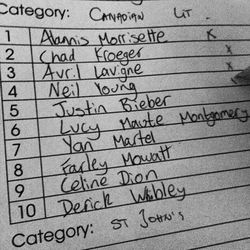 Category: CANADIAN LIT.
1 Alannis Morrisette x
2 Chad Kroeger x
3 Avril Lavigne x
4 Neil Young
5 Justin Bieber
6 Lucy Maute Montgomery
7 Yan Martel
8 Farley Mowatt
9 Celine Dion
10 Derick Whibley
Category: ST JOHN'S